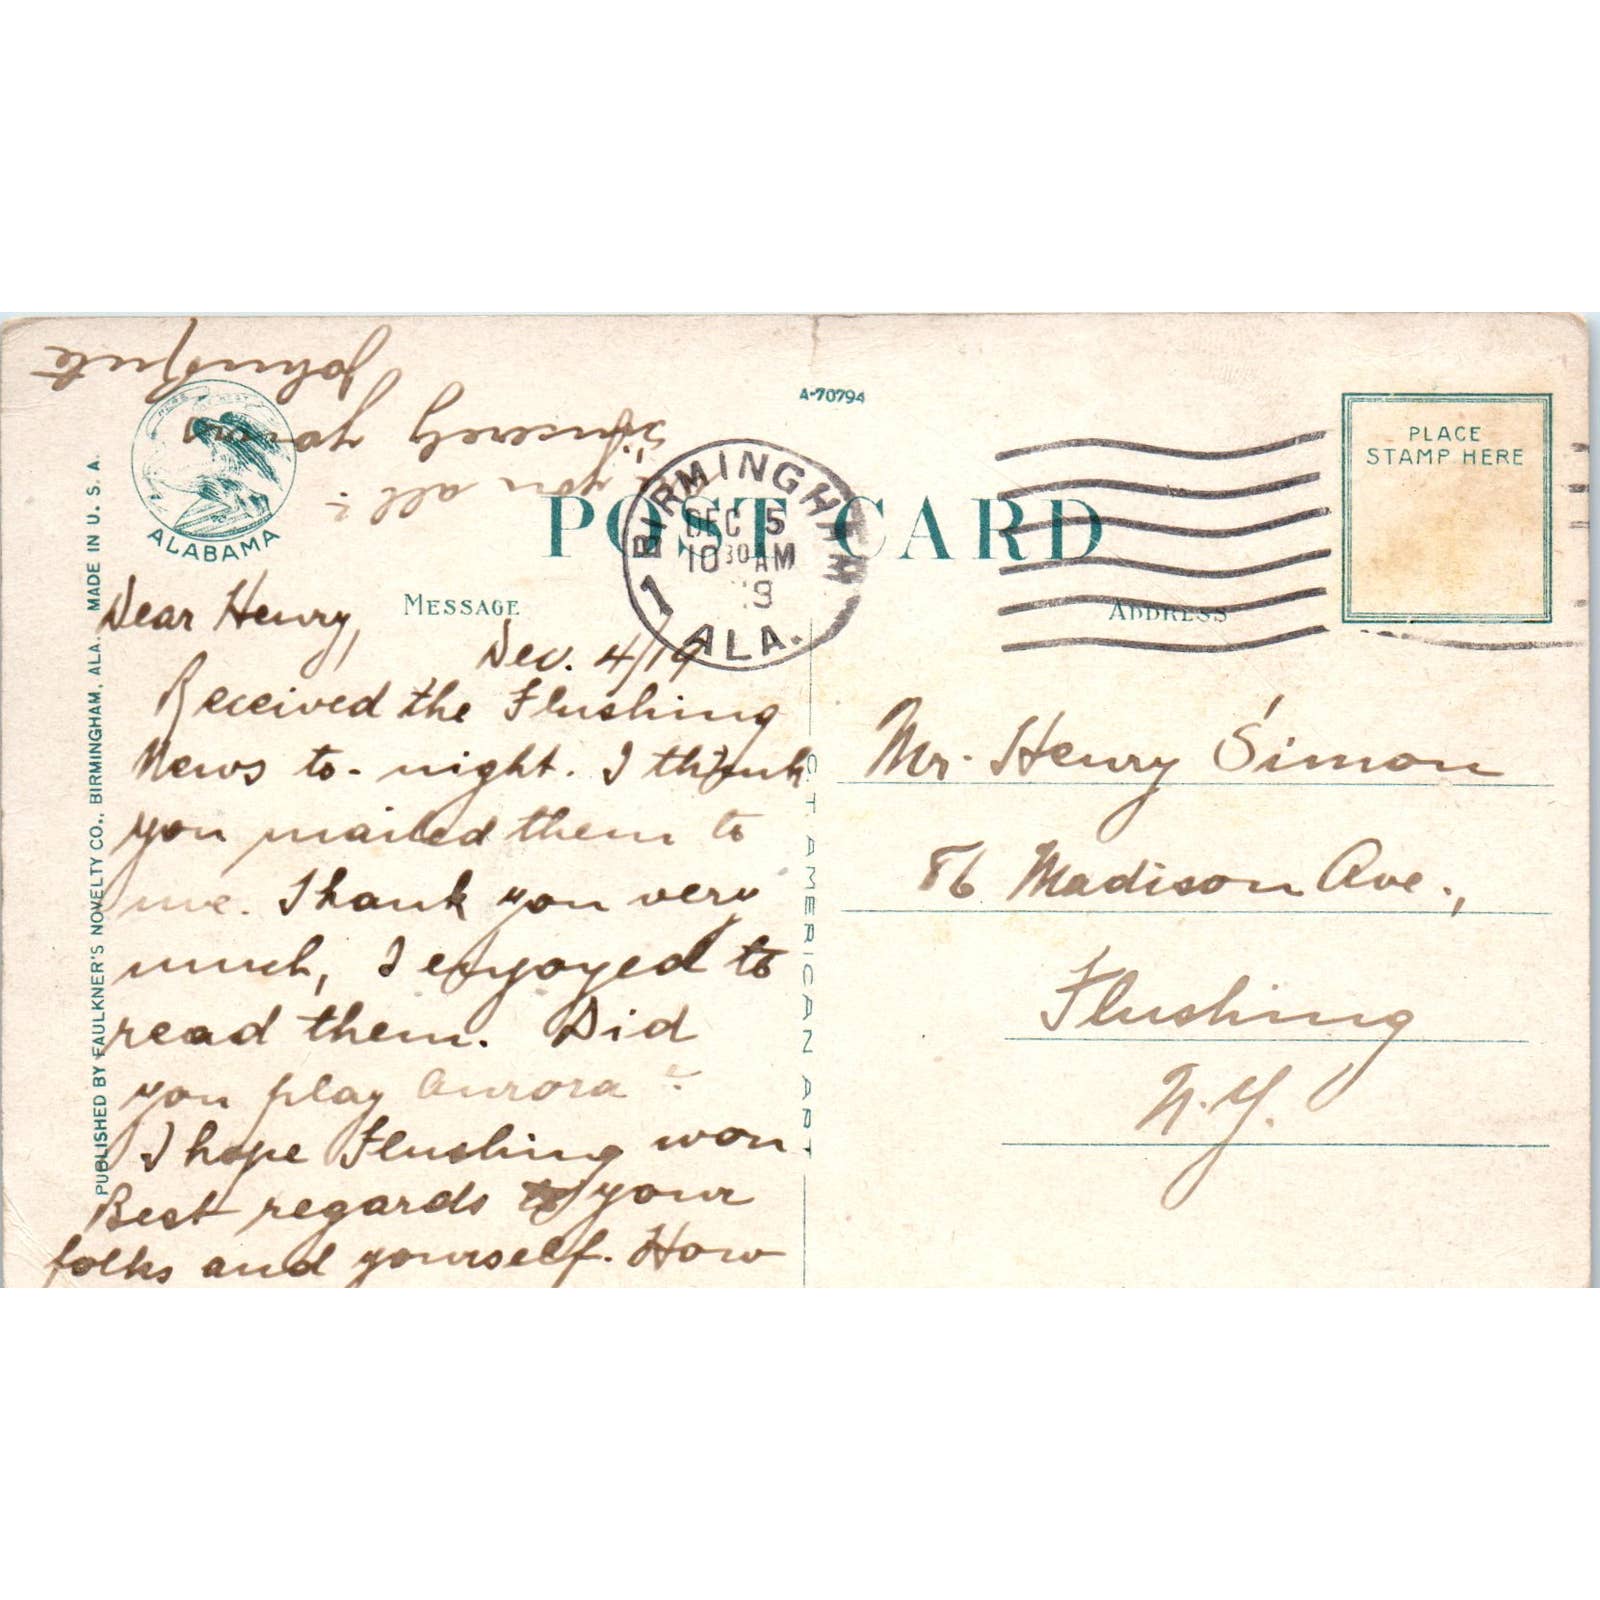 A-70794
POST CARD
PLACE
STAMP HERE
ALABAMA
BIRMINGHAM
DEC 5
10 30 AM
1
ALA.
MESSAGE
ADDRESS
Dear Henry,
Dec. 4/19
Received the Flushing
News to-night. I think
you mailed them to
me. Thank you very
much, I enjoyed to
read them. Did
you play Aurora?
I hope Flushing won.
Best regards to your
folks and yourself. How
is you all?
Sincerely yours
John
Mr. Henry Simon
86 Madison Ave.,
Flushing
N.Y.
PUBLISHED BY FAULKNER'S NOVELTY CO., BIRMINGHAM, ALA. MADE IN U. S. A.
C. T. AMERICAN ART